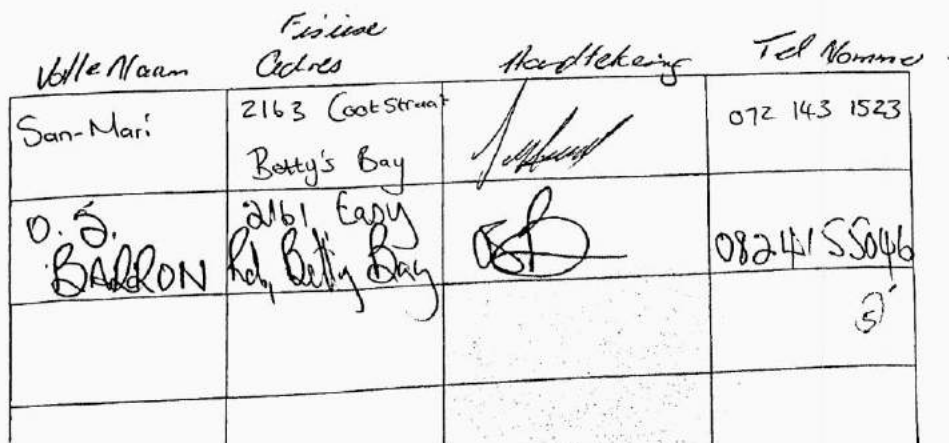 Volle Naam
Fisiese Adres
Handtekening
Tel Nommer
San-Mari
2163 Coot Straat
Betty's Bay
072 143 1523
O. S.
BARRON
2161 Easy
Rd, Betty Bay
0824155046